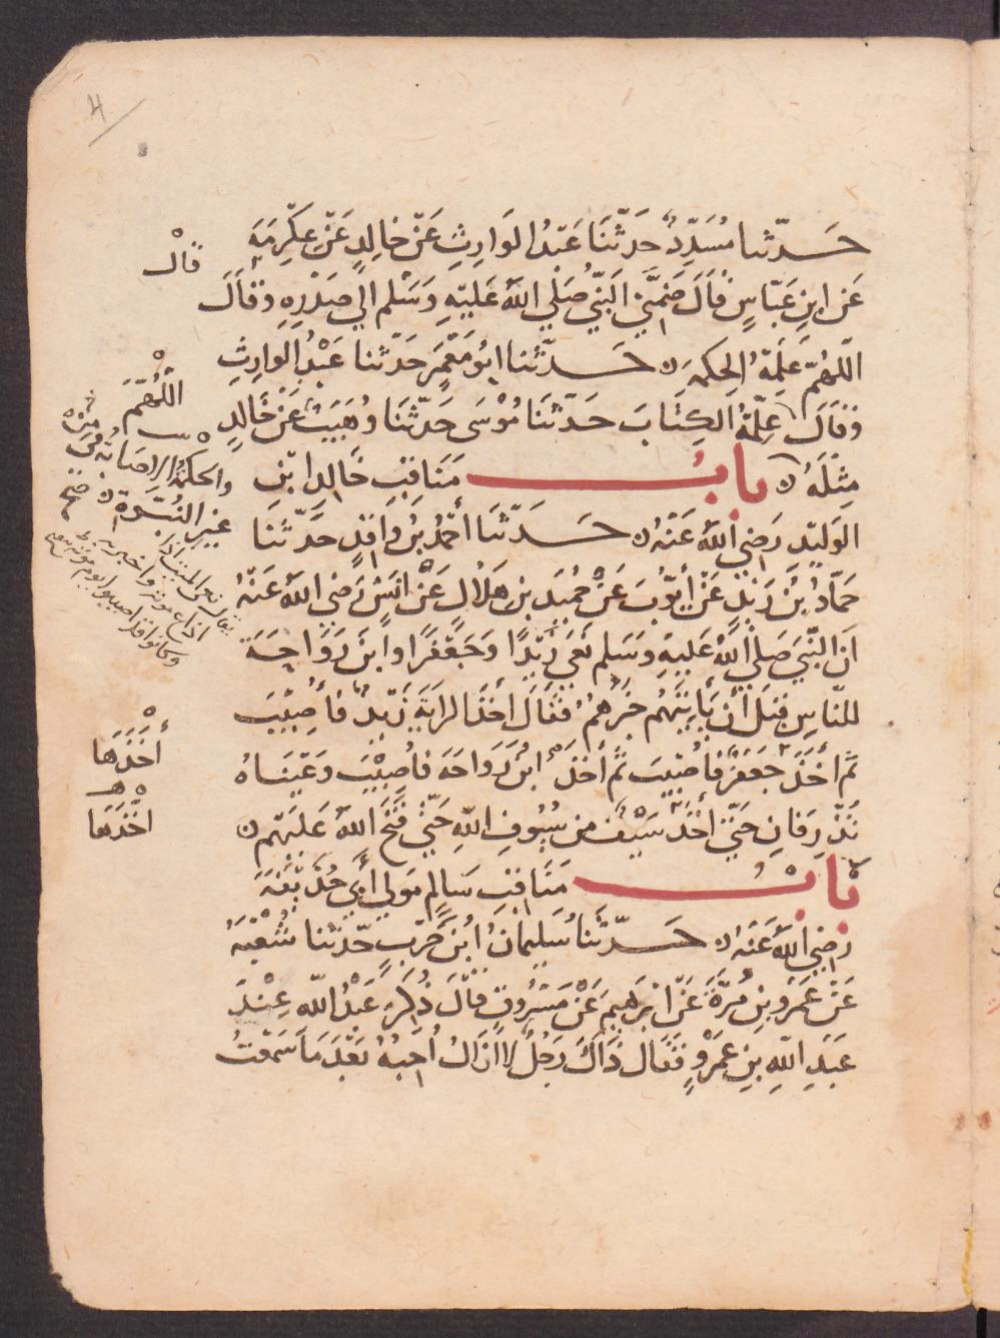 حدثنا مسدد حدثنا عبد الوارث عن خالد عن عكرمة
عن ابن عباس قال ضمني النبي صلي الله عليه وسلم الي صدره وقال
اللهم علمه الحكمة حدثنا ابو معمر حدثنا عبد الوارث
وقال علمه الكتاب حدثنا موسى حدثنا وهيب عن خالد
مثله باب مناقب خالد ابن
الوليد رضي الله عنه حدثنا أحمد بن واقد حدثنا
حماد بن زيد عن أيوب عن حميد بن هلال عن انس رضي الله عنه
ان النبي صلي الله عليه وسلم نعي زيدا وجعفرا وابن رواحة
للناس قبل أن يأتيهم خبرهم فقال أخذ الراية زيد فأصيب
ثم أخذ جعفر فأصيب ثم أخذ ابن رواحة فأصيب وعيناه
تذرفان حتي أخذ سيف من سيوف الله حتي فتح الله عليهم
باب مناقب سالم مولي أبي حذيفة
رضي الله عنه حدثنا سليمان ابن حرب حدثنا شعبة
عن عمرو بن مرة عن ابرهيم عن مسروق قال ذكر عبد الله عند
عبد الله بن عمرو فقال ذاك رجل لا ازال احبه بعد ما سمعت
قال
اللهم
والحكمة الاصابة في
غير النبوة
أخذها
اخذها
4